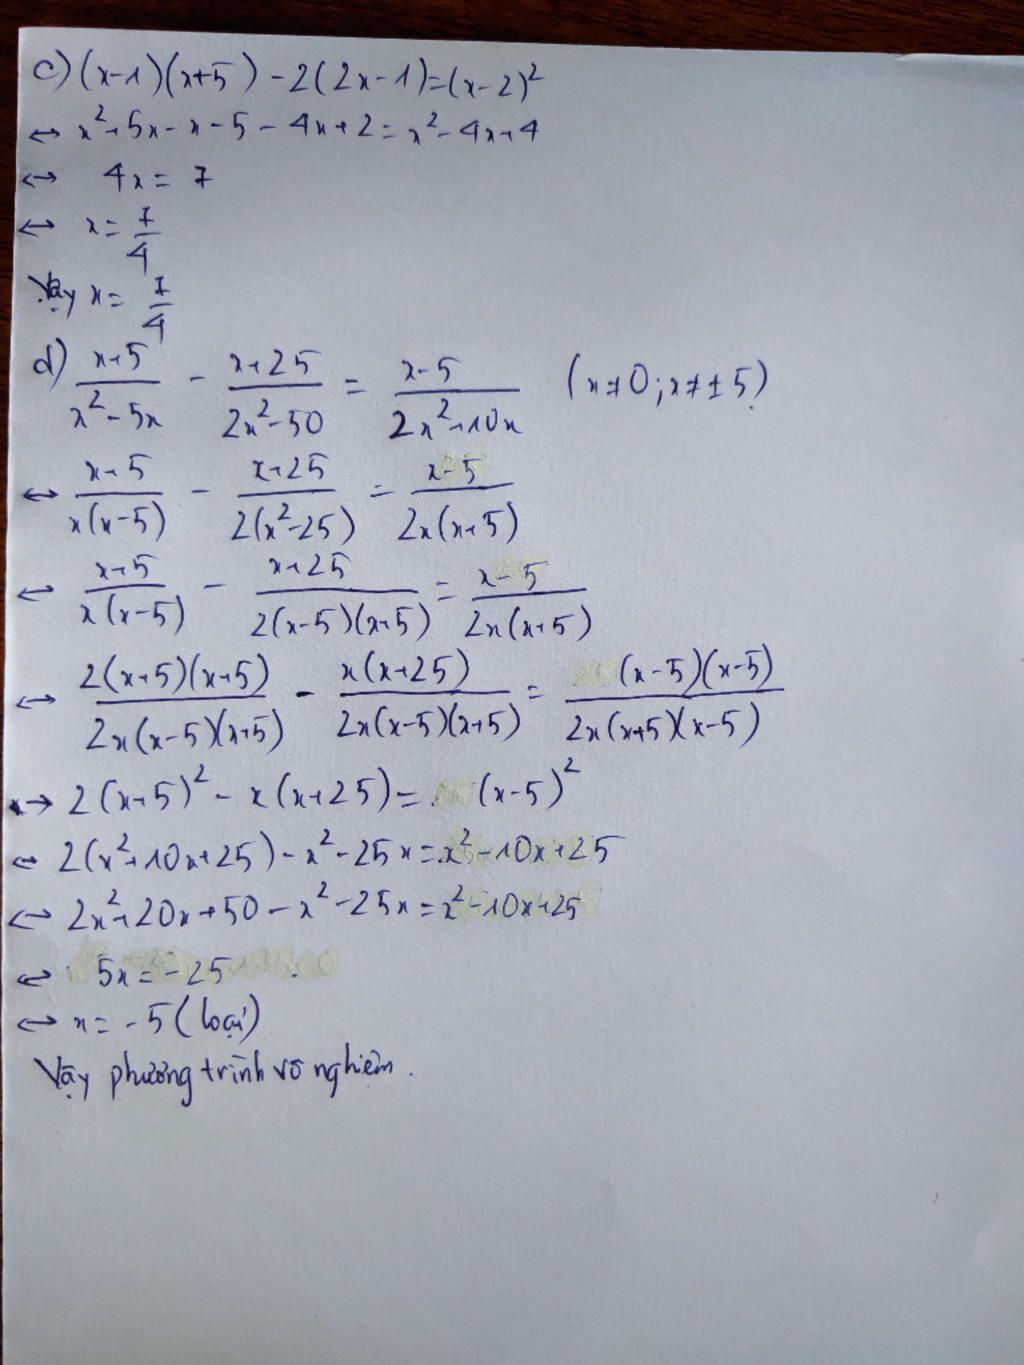 c) (x-1)(x+5) - 2(2x-1)=(x-2)²
↔ x²+5x-x-5-4x+2=x²-4x+4
↔ 4x=7
↔ x=7/4
Vậy x=7/4
d) (x+5)/(x²-5x) - (x+25)/(2x²-50) = (x-5)/(2x²+10x) (x≠0; x≠±5)
↔ (x+5)/(x(x-5)) - (x+25)/(2(x²-25)) = (x-5)/(2x(x+5))
↔ (x+5)/(x(x-5)) - (x+25)/(2(x-5)(x+5)) = (x-5)/(2x(x+5))
↔ (2(x+5)(x+5))/(2x(x-5)(x+5)) - (x(x+25))/(2x(x-5)(x+5)) = ((x-5)(x-5))/(2x(x+5)(x-5))
→ 2(x+5)² - x(x+25) = (x-5)²
↔ 2(x²+10x+25)-x²-25x=x²-10x+25
↔ 2x²+20x+50-x²-25x=x²-10x+25
↔ 5x=-25
↔ x=-5 (loại)
Vậy phương trình vô nghiệm.